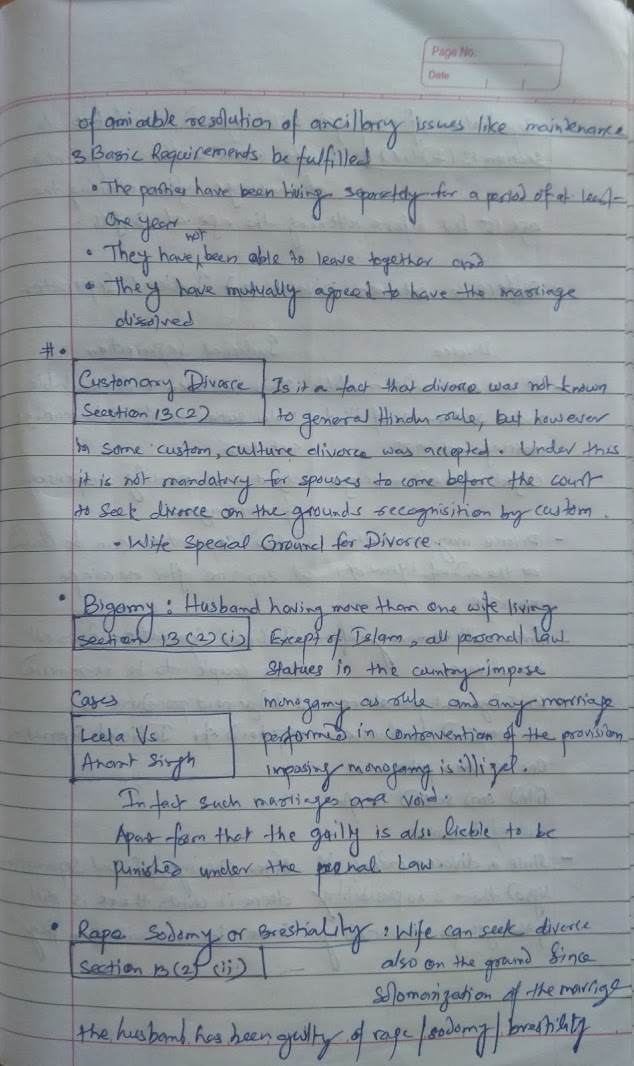 Page No.
Date
of amicable resolution of ancillary issues like maintenance
3 Basic Requirements be fulfilled
• The parties have been living separetdy for a period of at least
One year
• They have not been able to leave together and
• They have mutually agreed to have the marriage
dissolved
#•
Customary Divorce Is it a fact that divorce was not known
Secction 13(2) to general Hindu rule, but however
in some custom, culture divorce was accepted. Under this
it is not mandatory for spouses to come before the court
to seek divorce on the grounds recognisition by custom.
• Wife Special Ground for Divorce.
• Bigamy : Husband having more than one wife living
Section 13(2)(i) Except of Islam, all personal law
Statues in the country impose
Cases monogamy as rule and any marriage
Leela Vs performed in contravention of the provision
Anant Singh imposing monogamy is illigel.
In fact such marriages are void.
Apart from that the gailty is also lickble to be
punished under the penal Law.
• Rape Sodomy or Brestiality : Wife can seek divorce
Section 13(2) (ii) also on the ground Since
Solomanization of the marrige
the husband has been guilty of rape/sodomy/brestility